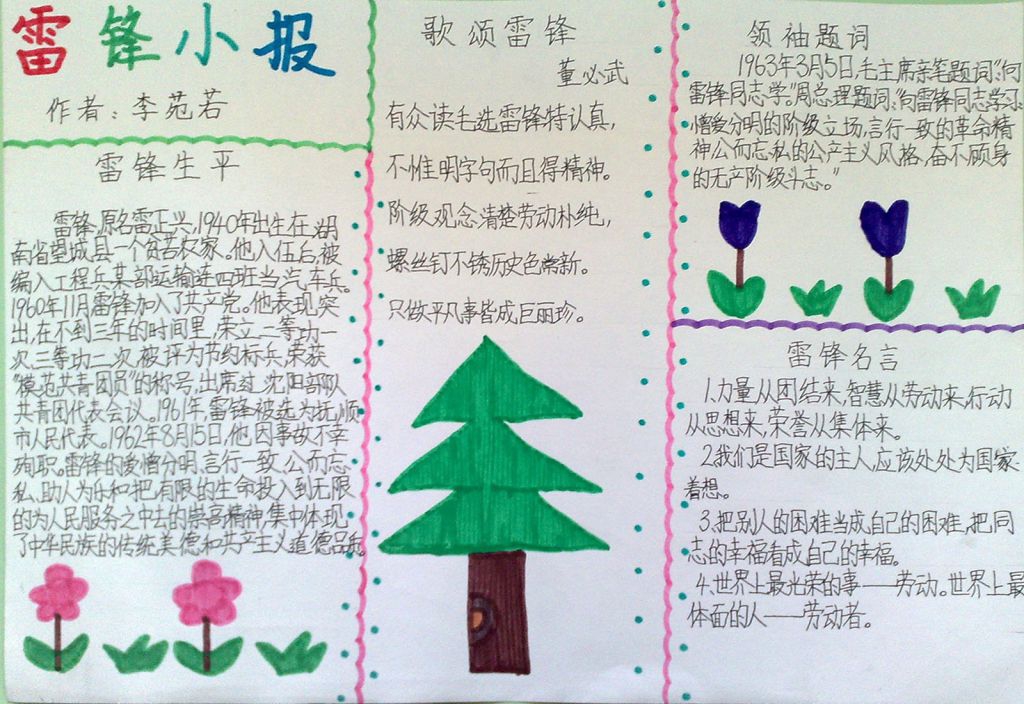 雷锋小报
作者:李苑若
雷锋生平
雷锋,原名雷正兴,1940年出生在湖
南省望城县一个贫苦农家。他入伍后,被
编入工程兵某部运输连四班当汽车兵。
1960年11月雷锋加入了共产党。他表现突
出,在不到三年的时间里,荣立二等功一
次三等功二次,被评为节约标兵,荣获
“模范共青团员”的称号,出席过沈阳部队
共青团代表会议。1961年,雷锋被选为抚顺
市人民代表。1962年8月15日,他因事故不幸
殉职。雷锋的爱憎分明、言行一致、公而忘
私、助人为乐和把有限的生命投入到无限
的为人民服务之中去的崇高精神,集中体现
了中华民族的传统美德和共产主义道德品质。
歌颂雷锋
董必武
有众读毛选,雷锋特认真,
不惟明字句而且得精神。
阶级观念清楚劳动朴纯,
螺丝钉不锈历史色常新。
只做平凡事皆成巨丽珍。
领袖题词
1963年3月5日,毛主席亲笔题词:“向
雷锋同志学。”周总理题词:“向雷锋同志学习:
憎爱分明的阶级立场,言行一致的革命精
神公而忘私的公产主义风格,奋不顾身
的无产阶级斗志。”
雷锋名言
1.力量从团结来,智慧从劳动来,行动
从思想来,荣誉从集体来。
2我们是国家的主人,应该处处为国家
着想。
3.把别人的困难当成自己的困难,把同
志的幸福看成自己的幸福。
4.世界上最光荣的事——劳动。世界上最
体面的人——劳动者。